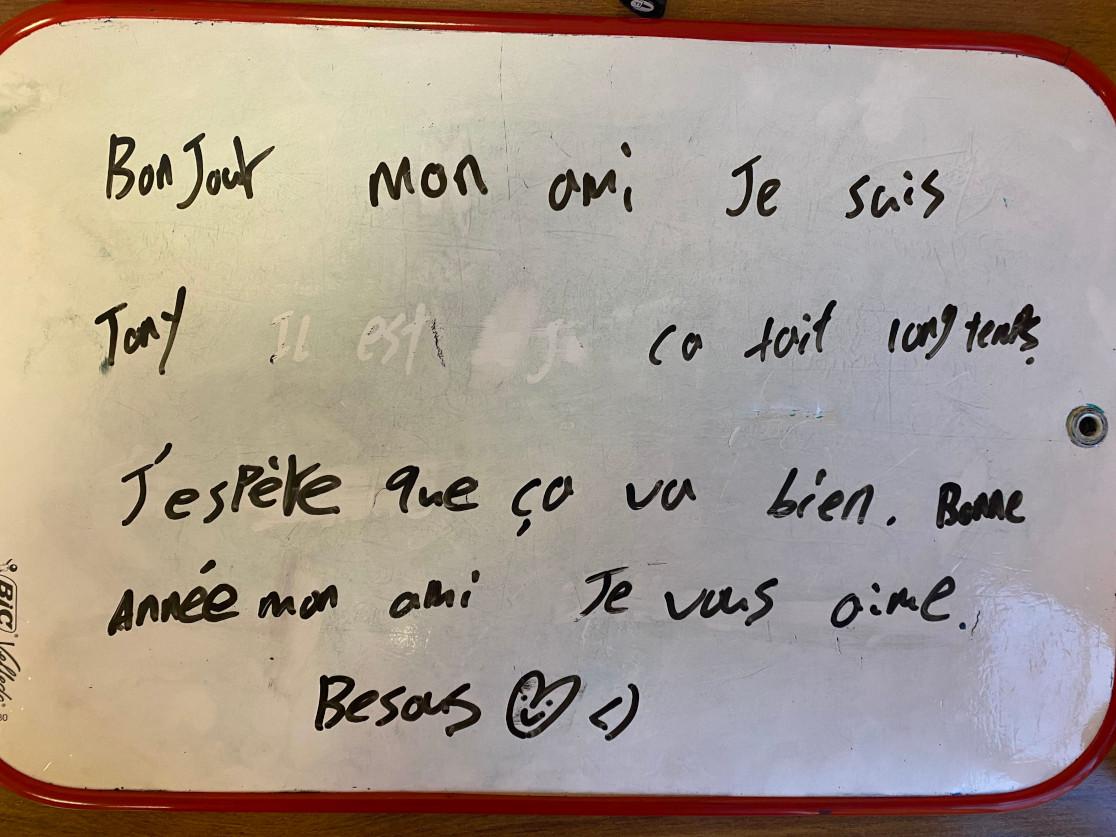 BonJour mon ami Je suis
Tony Il est ca fait longtemps
J'espère que ça va bien. Bonne
Année mon ami Je vous aime.
Besous <)
BIC Velleda